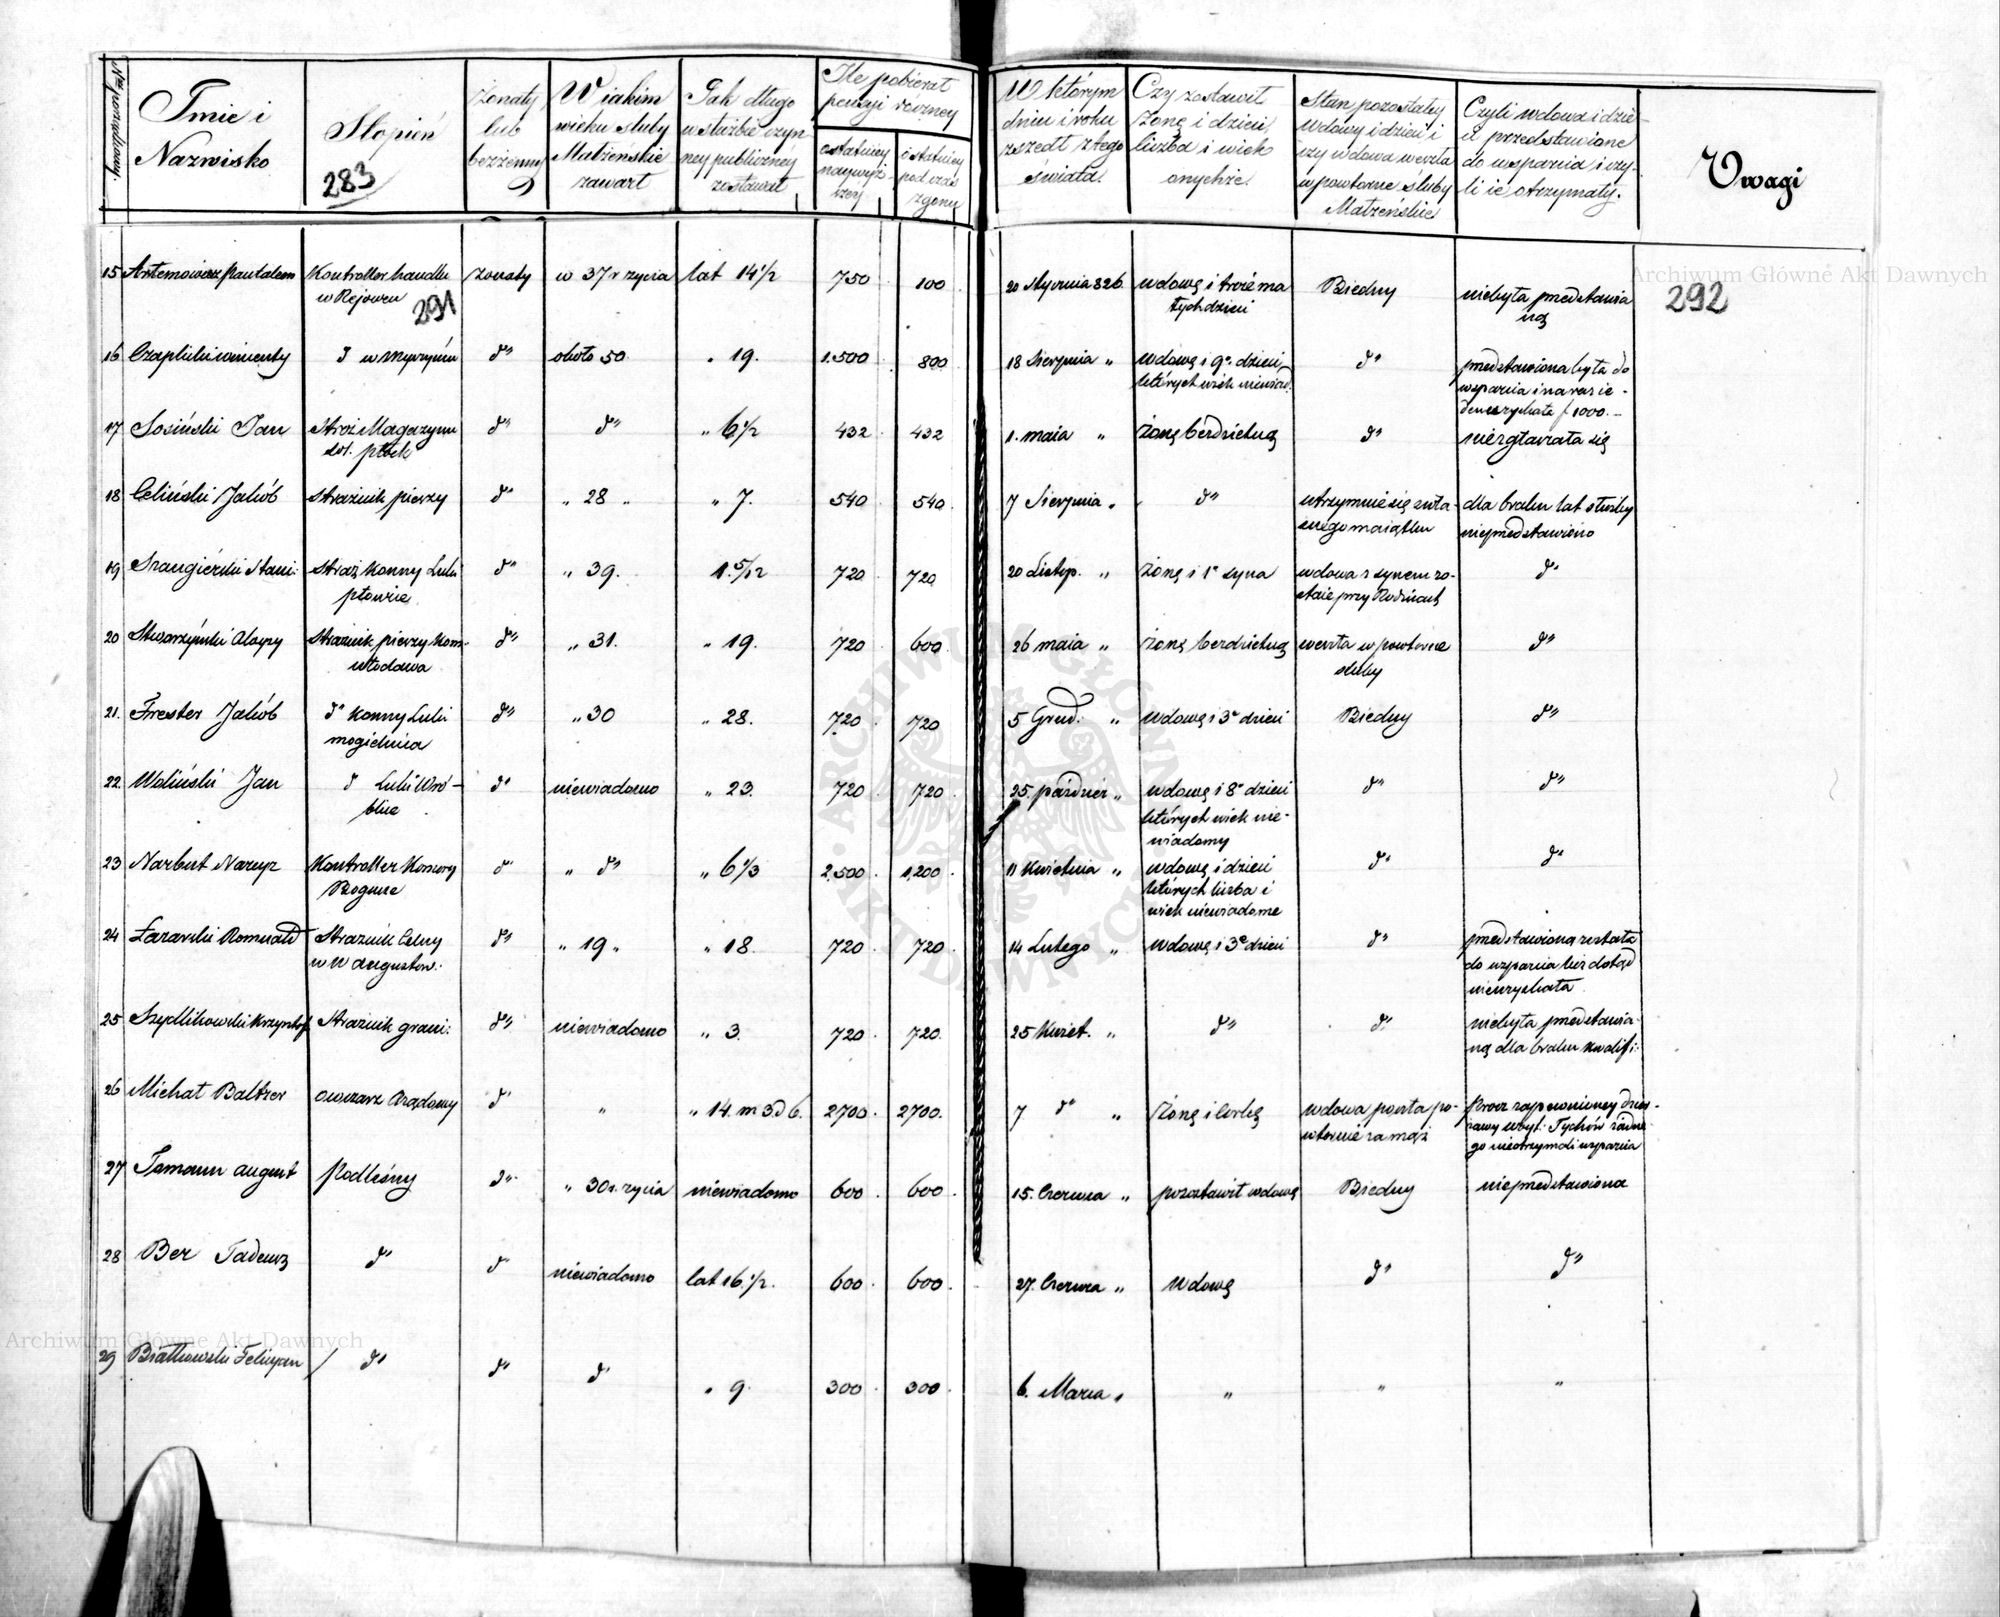 Nr porządkowy.
Imie i Nazwisko
Stopień
283
Żonaty lub bezżenny
W iakim wieku śluby Małżeńskie zawarł
Jak długo w służbie czynney publiczney zostawał
Ile pobierał pensyi roczney
ostatniey naywyższey
ostatniey podczas zgonu
W którym dniu i roku zszedł z tego świata.
Czy zostawił żonę i dzieci, liczba i wiek onychże.
Stan pozostałey Wdowy i dzieci i czy wdowa weszła w powtorne śluby Małżeńskie
Czyli wdowa i dzieci przedstawione do wsparcia i czyli ie otrzymały.
Uwagi
15 Artemowicz Pantaleon Kontroller handlu żonaty w 37 r życia lat 14 1/2 750 100 20 Stycznia 826 wdowę i troie ma Biedny niebyła przedstawia
w Rejowcu łych dzieci ną
291 292
16 Czaplicki wincenty d° około 50 " 19. 1.500 800 18 Sierpnia " wdowę i 9° dzieci d° przedstawiona była do
których wiek niewiad. wsparcia i na raz ie-
den uzyskała f 1000.
17 Sosiński Jan Stróż Magazynu d° d° " 6 1/2 432 432 1. maia " żonę bezdzietną d° niezgłaszała się
sol. płock
18 Celiński Jakób Strażnik pieszy d° " 28 " " 7. 540 540 7 Sierpnia " d° utrzymuie się z wła- dla braku lat służby
snego maiątku nieprzedstawiono
19 Straż Konny d° " 39. 1. 5/12 720 720 20 Listop. " żonę i 1° syna wdowa z synem zo- d°
staie przy Rodzicach
20 Stworzyński Aloyzy Strażnik pieszy Kom: d° " 31. " 19. 720 600 26 maia " żonę bezdzietną weszła w powtórne d°
włodawa śluby
21. Frester Jakób d° Konny d° " 30 " 28. 720 720 5 Grud. " wdowę i 3° dzieci Biedny d°
mogielnica
22. Woliński Jan d° d° niewiadomo " 23. 720 720 25. paździer " wdowę i 8° dzieci d° d°
których wiek nie-
wiadomy
23 Narbut Narcyz Kontroller Komory d° " d° " 6 1/3 2,500 1,200 11 Kwietnia " wdowę i dzieci d° d°
Bogusze których liczba i
wiek niewiadome
24 Łazarski Romuald Strażnik Celny d° " 19 " " 18. 720 720 14 Lutego " wdowę i 3° dzieci d° przedstawioną została
w W august​ow: do wsparcia lecz dotąd
nieuzyskała
25 Szydlikowski Krzysztof Strażnik grani: d° niewiadomo " 3. 720 720 25 Kwiet. " d° d° niebyła przedstawia-
ną dla braku kwalifi:
26 Michał Baltzer owczarz Rządowy d° " " 14. m 3 d 6. 2700 2700 7 d° " żonę i Corkę wdowa poszła po-
wtornie za mąż
go nieotrzymali wsparcia
27 Tomann august Podleśny d° " 30 r. życia niewiadomo 600 600 15. Czerwca " pozostawił wdowę Biedny nieprzedstawiona
28 Ber Tadeusz d° d° niewiadomo lat 16 1/2. 600 600 27. Czerwca " wdowę d° d°
29 Białkowski Felicyan d° d° d° " 9. 300 300 6. Marca " " " "
Archiwum Główne Akt Dawnych
Archiwum Główne Akt Dawnych
ARCHIWUM GŁÓWNE AKT DAWNYCH